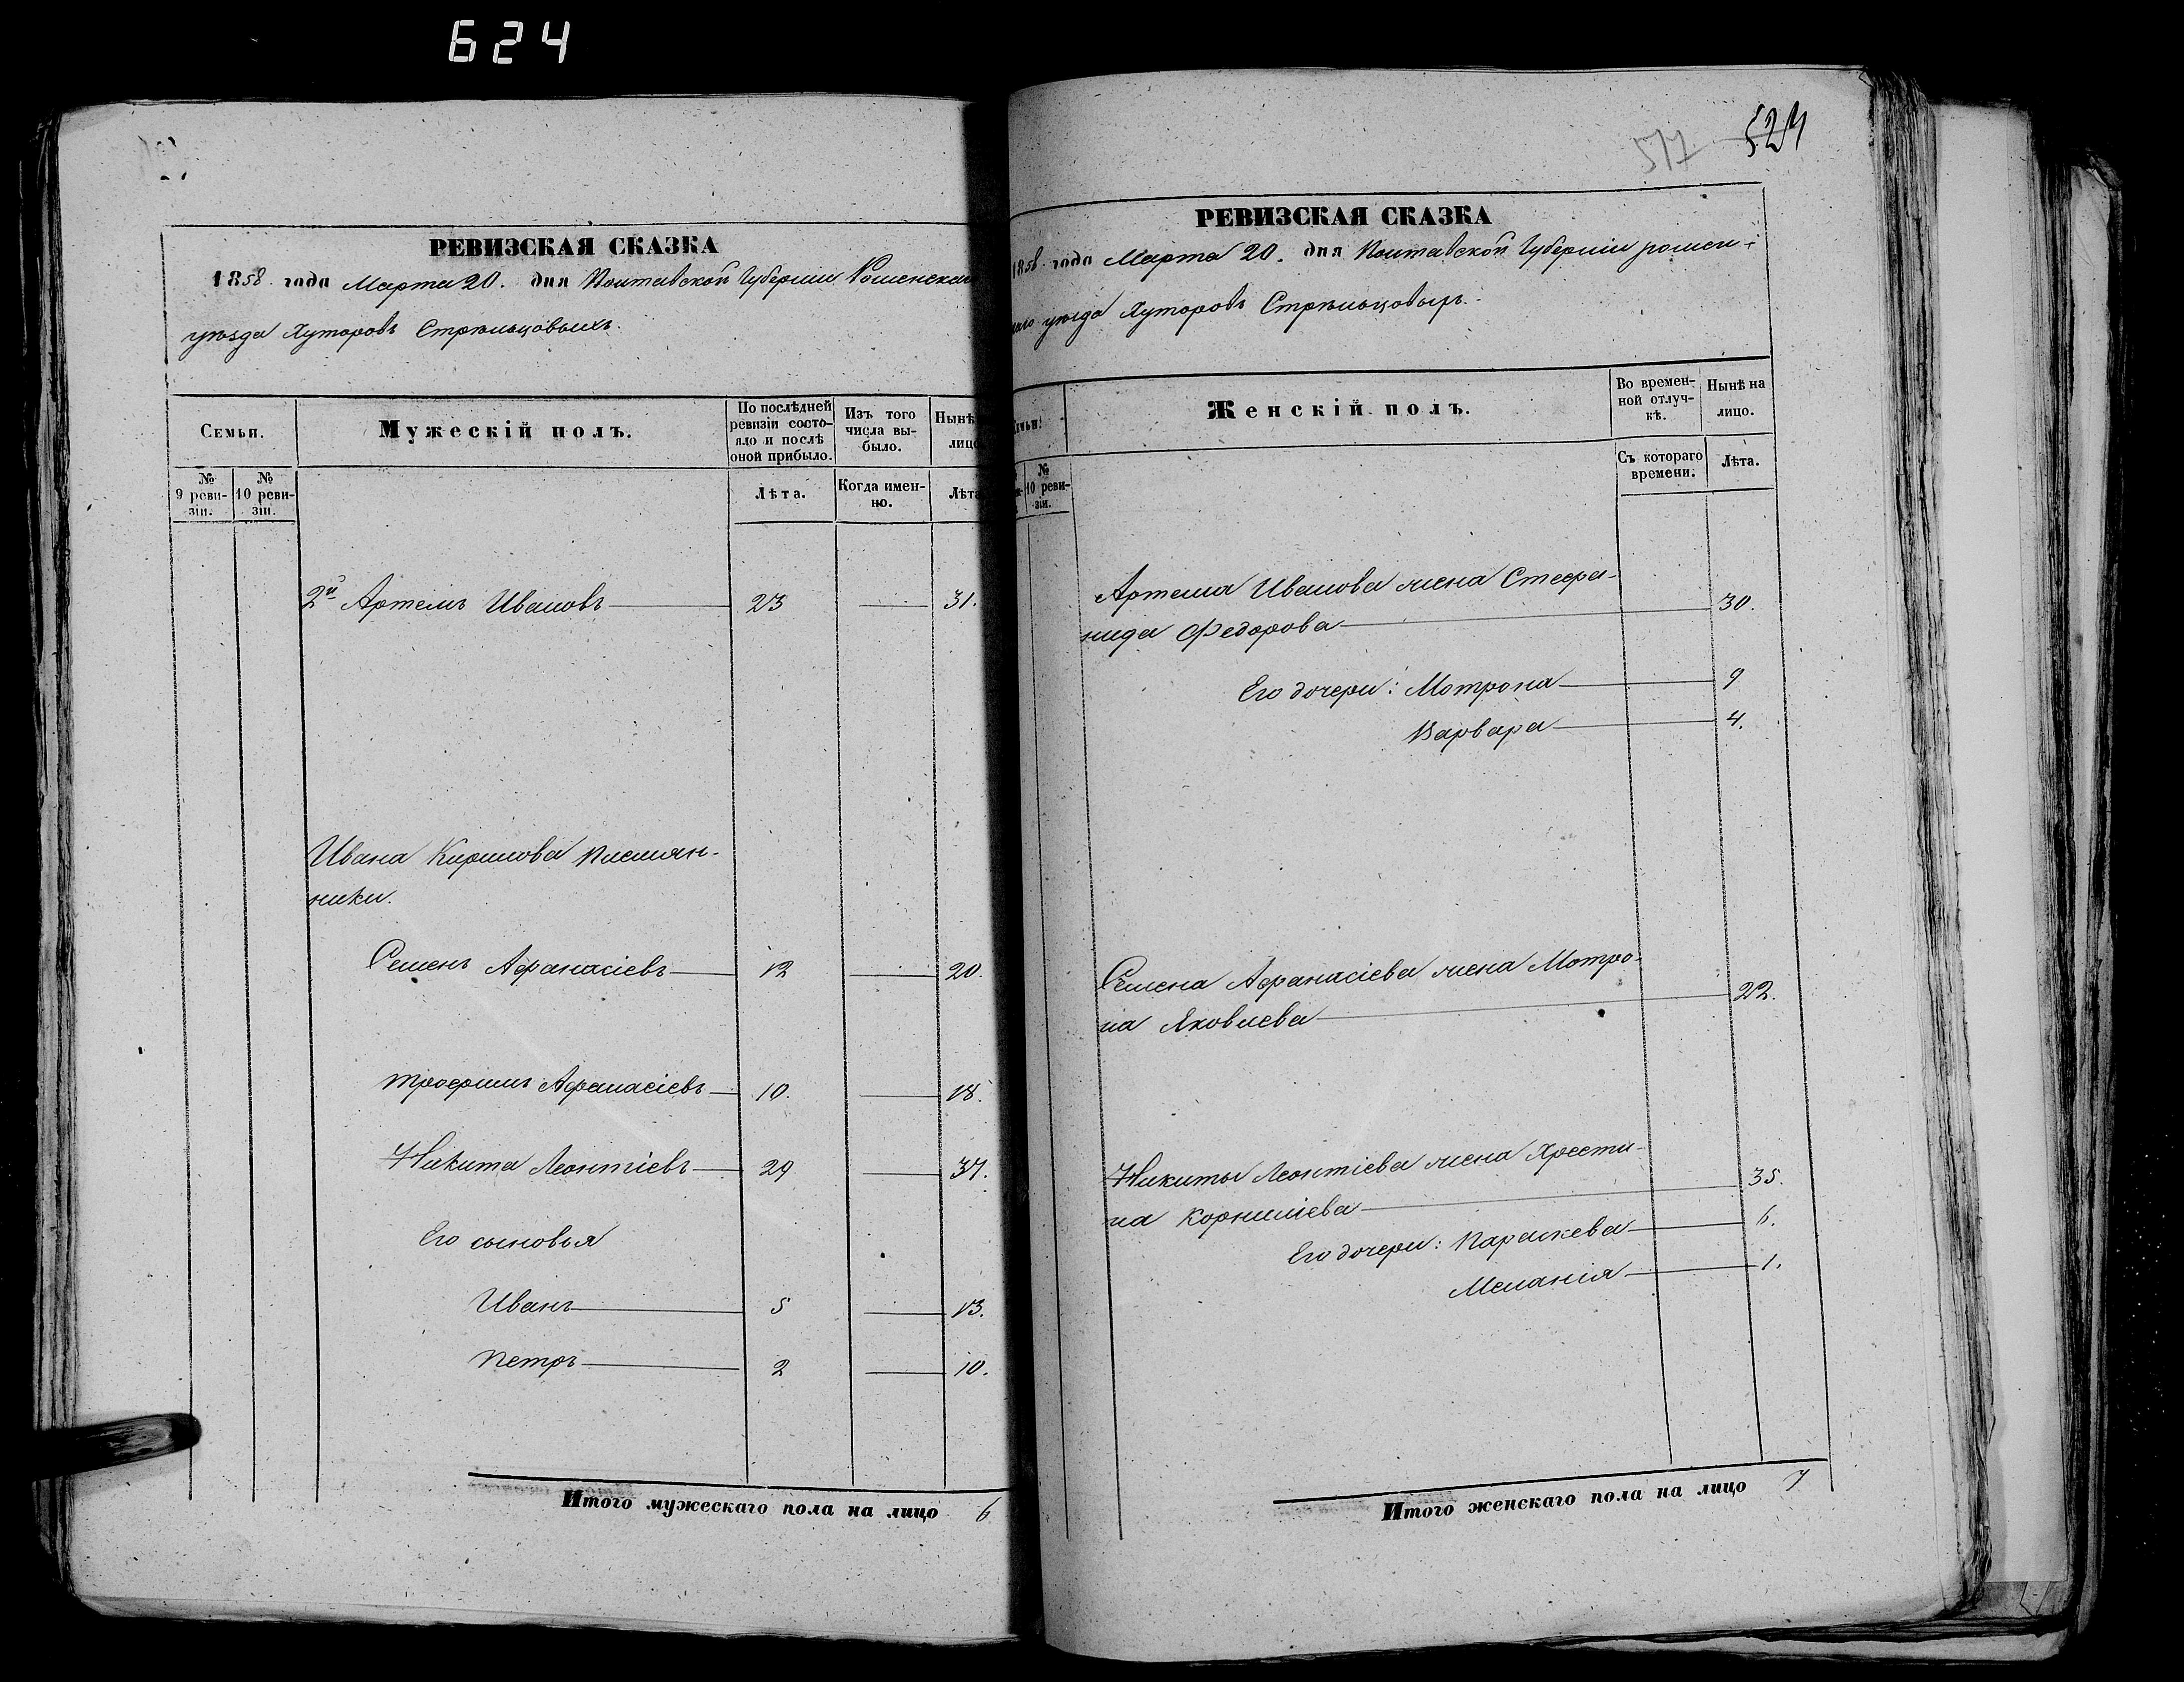 624
РЕВИЗСКАЯ СКАЗКА
1858 года Марта 20. дня Полтавской Губернии Роменскаго
уѣзда Хуторовъ Стрѣльцовыхъ.
Семья.
Мужескій полъ.
По послѣдней ревизіи состояло и послѣ оной прибыло.
Изъ того числа выбыло.
Нынѣ
лицо
№ 9 ревизіи.
№ 10 ревизіи.
Лѣта.
Когда именно.
Лѣта
2й Артемъ Ивановъ 23 31.
Ивана Кирилова племян-
ники.
Семенъ Афанасіевъ 12 20.
Трофимъ Афанасіевъ 10. 18.
Никита Леонтіевъ 29 37.
Его сыновья
Иванъ 5 13.
Петръ 2 10.
Итого мужескаго пола на лицо 6
517 524
РЕВИЗСКАЯ СКАЗКА
1858 года Марта 20. дня Полтавской Губерніи Ромен-
скаго уѣзда Хуторовъ Стрѣльцовыхъ.
Женскій полъ.
Во временной отлучкѣ.
Нынѣ на лицо.
№ 10 ревизіи.
Съ котораго времени.
Лѣта.
Артема Иванова жена Стефа-
нида Федорова 30.
Его дочери: Мотрона 9
Варвара 4.
Семена Афанасіева жена Мотро-
на Яковлева 22.
Никиты Леонтіева жена Хрести-
на Корниліева 35.
Его дочери: Параскева 6.
Меланія 1.
Итого женскаго пола на лицо 7